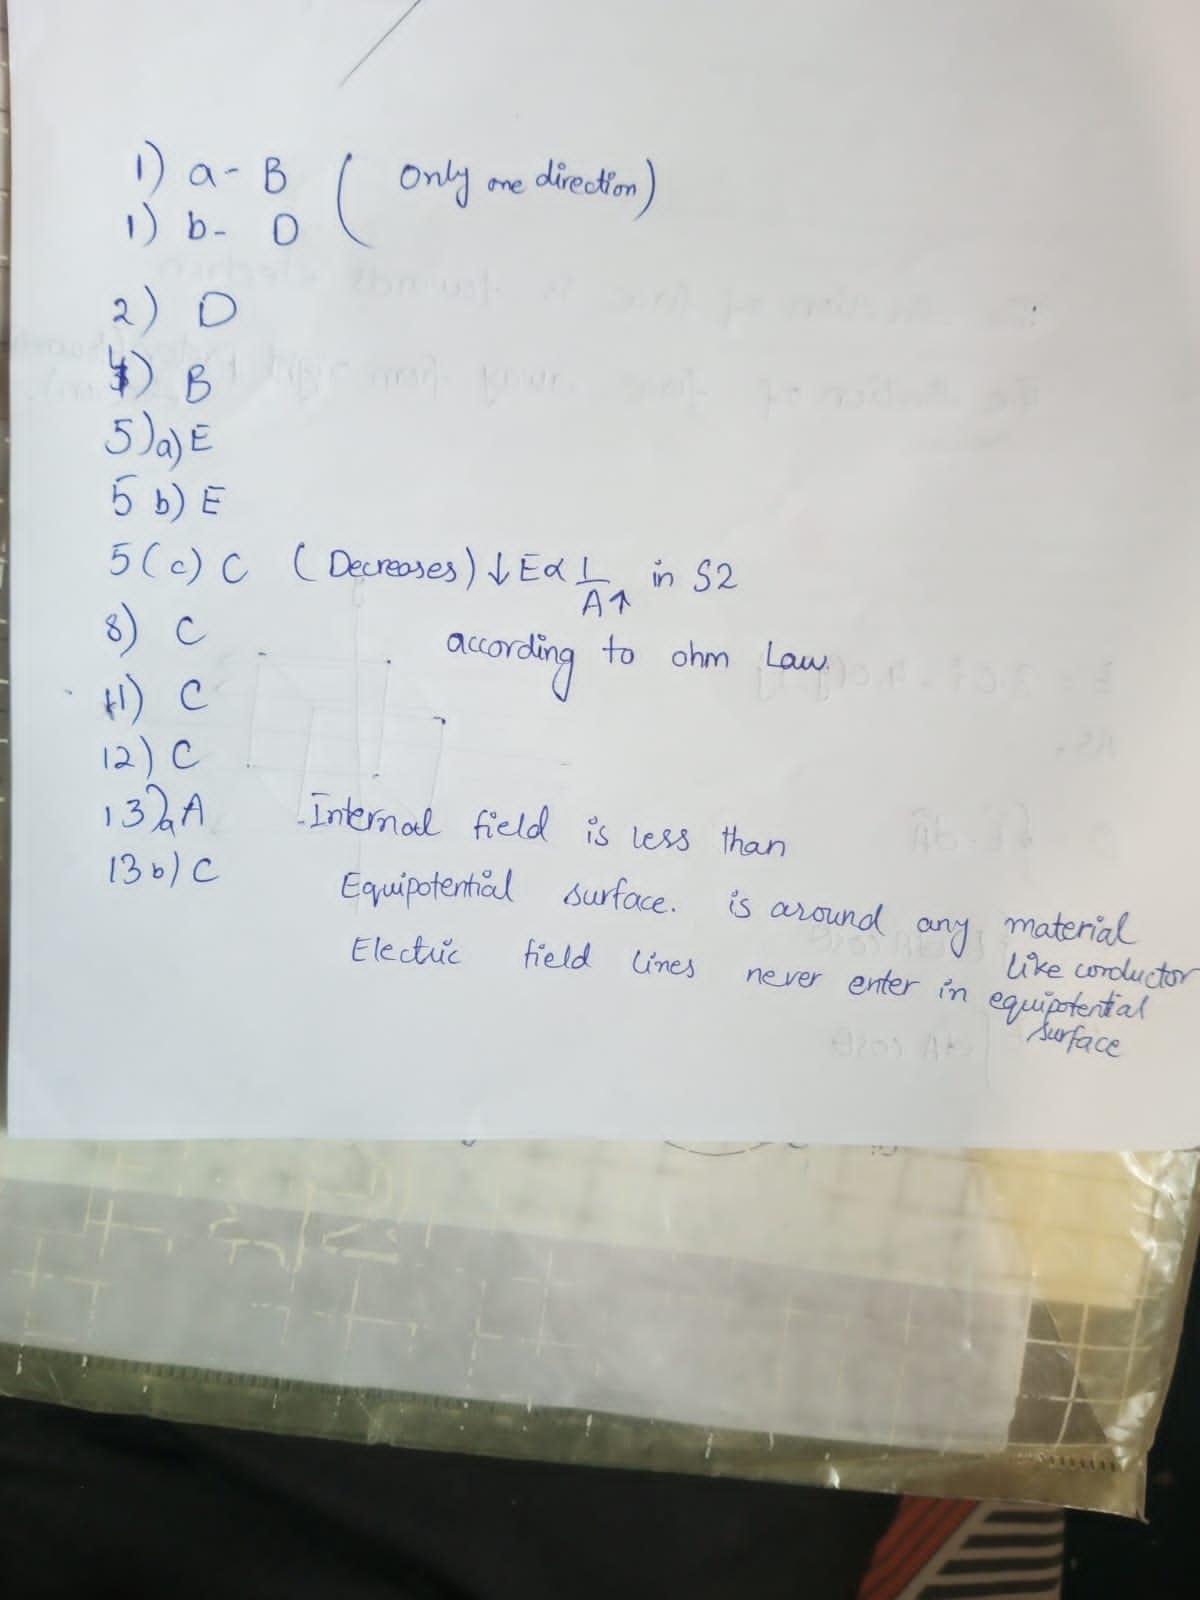 1) a - B ( Only one direction)
1) b - D
2) D
4) B
5) a) E
5 b) E
5 (c) C ( Decreases) ↓ E ∝ L/A↑ in S2
according to ohm Law.
8) C
11) C
12) C
13) a A Internal field is less than
13 b) C Equipotential surface. is around any material
like conductor
Electric field lines never enter in equipotential
surface